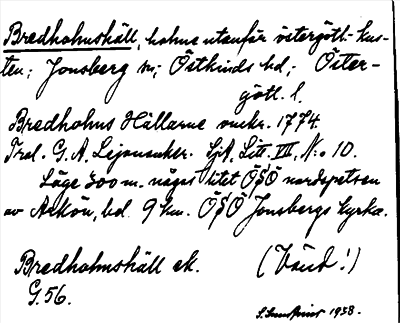 Bredholmshäll, holme utanför östergötl. kus-
ten; Jonsberg sn; Östkinds hd; Öster-
götl. l.
Bredholms Hällarne omkr. 1774.
Tral. G. A. Lejonanker. SjA, Litt. VII, N:o 10.
Läge 300 m. något litet ÖSÖ nordspetsen
av Askön, bel. 9 km. ÖSÖ Jonsbergs kyrka.
Bredholmshäll ek. (Vänd!)
G. 56.
1938.